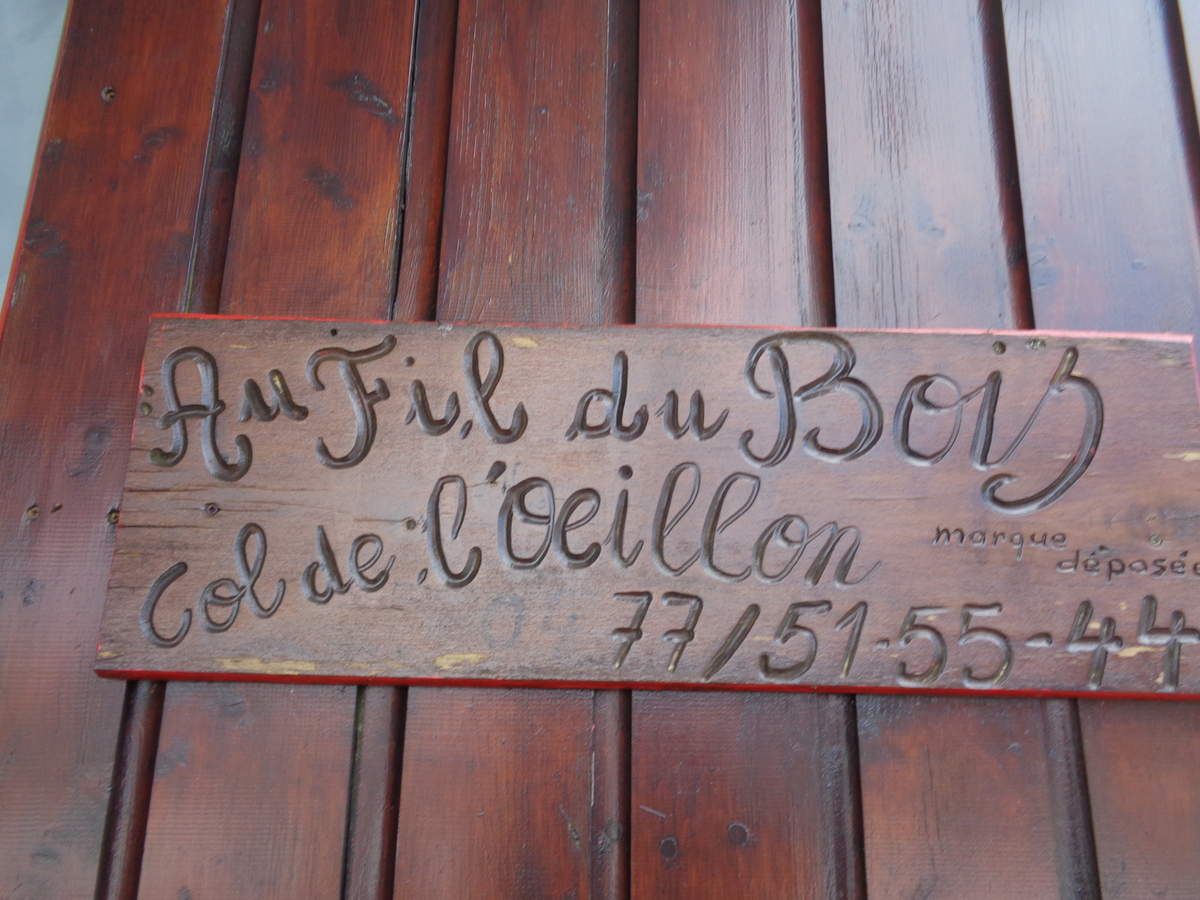 Au Fil du Bois
Col de l'Oeillon
marque déposée
77/51-55-44